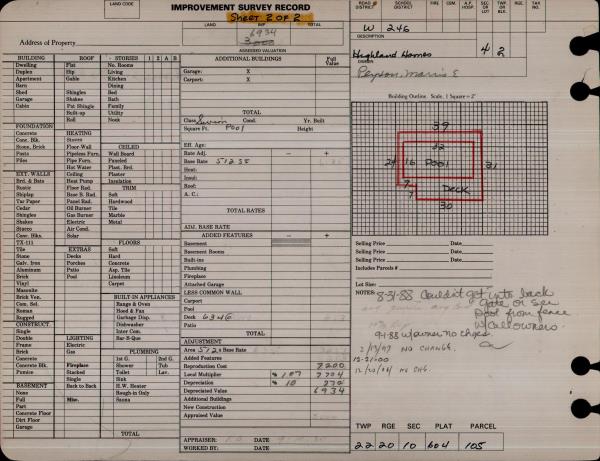 LAND CODE
IMPROVEMENT SURVEY RECORD
Sheet 2 of 2
LAND IMP TOTAL
6934
ASSESSED VALUATION
Address of Property
ROAD DISTRICT SCHOOL DISTRICT FIRE CEM. A.P. HOSP. SEC. OR LOT TWP. OR BLK. RGE. TAX NO.
W 246
DESCRIPTION
Highland Homes 4 2
OWNER
BUILDING ROOF STORIES 1 2 A B
Dwelling Flat No. Rooms
Duplex Hip Living
Apartment Gable Kitchen
Barn Dining
Shed Shingles Bed
Garage Shakes Bath
Cabin Pat Shingle Family
Built-up Utility
Roll Nook
FOUNDATION
Concrete HEATING
Conc. Blk. Stoves CEILED
Stone, Brick Floor-Wall Wall Board
Posts Pipeless Furn. Paneled
Piles Pipe Furn. Plast. Brd.
Hot Water Plaster
EXT. WALLS Ceiling Insulation
Brd. & Bats Heat Pump TRIM
Rustic Floor Rad. Soft
Shiplap Base B. Rad. Hardwood
Tar Paper Panel Rad. Tile
Cedar Oil Burner Marble
Shingles Gas Burner Metal
Shakes Electric
Stucco Air Cond.
Conc. Blks. Solar
TX-111 FLOORS
Tile EXTRAS Soft
Stone Decks Hard
Galv. Iron Porches Concrete
Aluminum Patio Asp. Tile
Brick Pool Linoleum
Vinyl Carpet
Masonite
Brick Ven. BUILT-IN APPLIANCES
Com. Sel. Range & Oven
Roman Hood & Fan
Rugged Garbage Disp.
CONSTRUCT. Dishwasher
Single Inter Com.
Double LIGHTING Bar-B-Que
Frame Electric
Brick Gas PLUMBING
Concrete 1st G. 2nd G.
Concrete Blk. Fireplace Shower Tub
Pumice Single Toilet Lav.
Back to Back Sink
BASEMENT H.W. Heater
None Rough-in Only
Full Misc. Sauna
Part
Concrete Floor
Dirt Floor
Garage
TOTAL
ADDITIONAL BUILDINGS Full Value
Garage: X
Carport: X
TOTAL
Class Swim Cond. Yr. Built
Square Ft. Pool Height
Eff. Age:
Rate Adj. +
Base Rate 512 SS
Heat:
Insul:
Roof:
A. C.:
TOTAL RATES
ADJ. BASE RATE
ADDED FEATURES − +
Basement
Basement Rooms
Built-ins
Plumbing
Fireplace
Attached Garage
LESS COMMON WALL
Carport
Pool
Deck 634
Patio
TOTAL
ADJUSTMENT
Area 512 Base Rate
Added Features
Reproduction Cost 7200
Local Multiplier % 107 7704
Depreciation % 10 770
Depreciated Value 6934
Additional Buildings
New Construction
Appraised Value
APPRAISER: DATE
WORKED BY: DATE
Building Outline. Scale, 1 Square = 2'
39
32
24 16 Pool 31
7
7 Deck
30
Selling Price Date
Selling Price Date
Selling Price Date
Includes Parcels #
Lot Size:
NOTES: 8-31-88 Couldn't get into back
gate or see
pool from fence
w/call owners.
9-1-88 w/owner no chges
2/13/97 NO CHANGE.
12-21-00
NO CHG.
TWP RGE SEC PLAT PARCEL
22 20 10 604 105